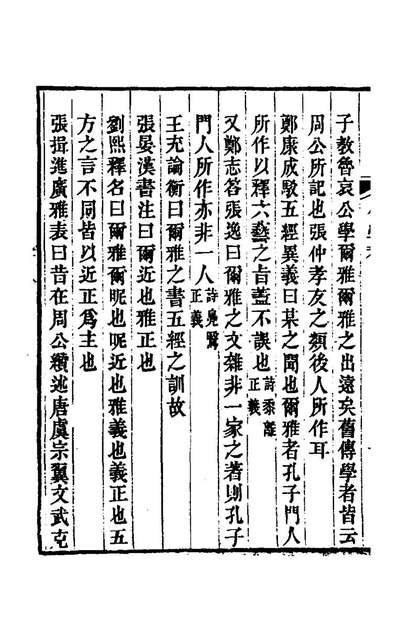 子教魯哀公學爾雅爾雅之出遠矣舊傳學者皆云
周公所記也張仲孝友之類後人所作耳
鄭康成駁五經異義曰某之聞也爾雅者孔子門人
所作以釋六藝之旨蓋不誤也詩黍離正義
又鄭志答張逸曰爾雅之文雜非一家之著則孔子
門人所作亦非一人詩鳧鷖正義
王充論衡曰爾雅之書五經之訓故
張晏漢書注曰爾近也雅正也
劉熙釋名曰爾雅爾昵也昵近也雅義也義正也五
方之言不同皆以近正爲主也
張揖進廣雅表曰昔在周公纘述唐虞宗翼文武克